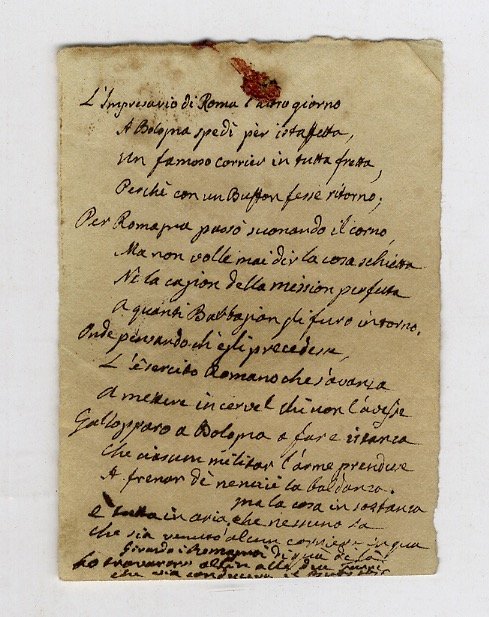 L'Impresario di Roma l'altro giorno
A Bologna spedì per istaffetta,
Un famoso corrier in tutta fretta,
Perchè con un Buffon fesse ritorno;
Per Romagna passò suonando il corno,
Ma non volle mai dir la cosa schietta
Nè la cagion della mission perfetta
A quanti Babbajon gli furo intorno.
Onde pensando ch'egli precedesse,
L'esercito Romano che s'avanza
A mettere in cervel chi non l'avesse
Gallopparo a Bologna a fare istanza
Che ciascun militar l'arme prendesse
A frenar de nemici la baldanza.
ma la cosa in sostanza
è tutta in aria, che nessuno sa
che sia venuto alcun corriere in qua
Girando i Romagna di qua di là
ho trovarono alfin alle due
che sia